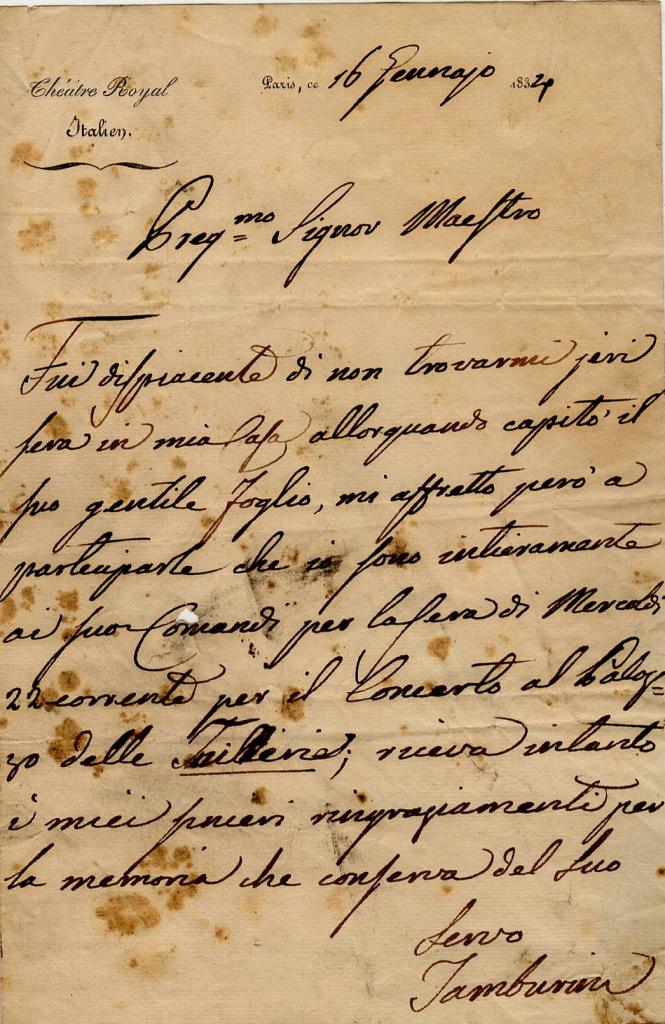 Théâtre Royal
Italien.
Paris, ce 16 Gennajo 1834
Preg.mo Signor Maestro
Fui dispiacente di non trovarmi jeri
sera in mia Casa allorquando capitò il
suo gentile foglio, mi affretto però a
parteciparle che io sono intieramente
ai suoi Comandi per la sera di Mercoldì
22 corrente per il Concerto al Palaz=
zo delle Tuillerie; riceva intanto
i miei sinceri ringraziamenti per
la memoria che conserva del suo
Servo
Tamburini